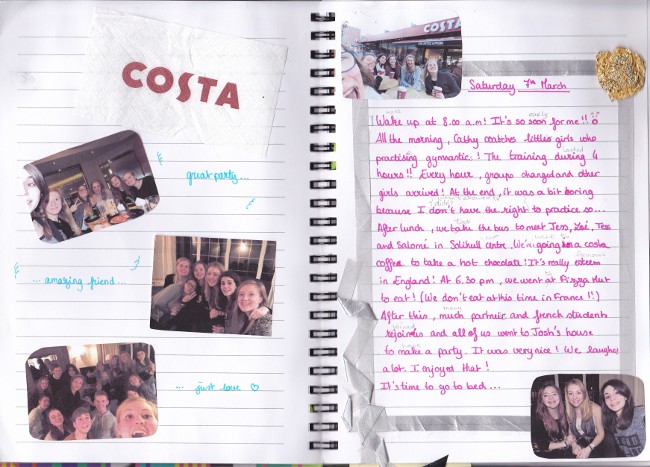 COSTA
great party...
... amazing friend...
... just love ♡
COSTA
Saturday 7th March
Wake up at 8.00 a.m! It's so soon for me!!
early
All the morning, Cathy coatches littles girls who
practising gymnastic! The training during 4
lasted
hours!! Every hour, groups changed and other
girls arrived! At the end, it was a bit boring
because I don't have the right to practice so...
After lunch, we take the bus to meet Jess, Zoé, Tess
and Salomé in Solihull centre. We're going in a costa
coffee to take a hot chocolate! It's really esteem
in England! At 6.30 pm, we went at Pizza Hut
to eat! (We don't eat at this time in France!!)
After this, much partner and french student
joined
rejoin us and all of us went to Josh's house
to make a party. It was very nice! We laughed
a lot. I enjoyed that!
It's time to go to bed...